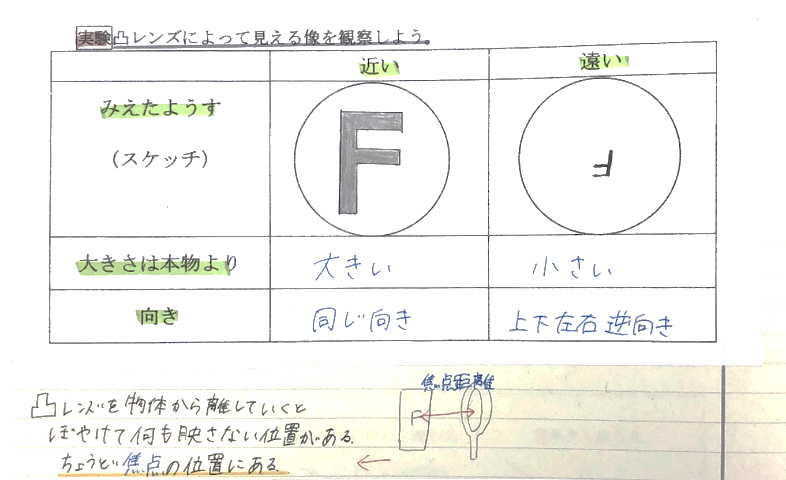 実験凸レンズによって見える像を観察しよう。
近い 遠い
みえたようす
(スケッチ)
F F
大きさは本物より 大きい 小さい
向き 同じ向き 上下左右逆向き
焦点距離
F
凸レンズを物体から離していくと
ぼやけて何も映さない位置がある。
ちょうど焦点の位置にある